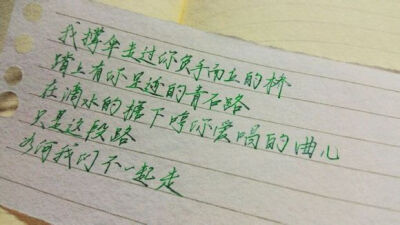 我撑伞走过你负手而立的桥
踏上有你足迹的青石路
在滴水的檐下哼你爱唱的曲儿
只是这段路
为何我们不一起走